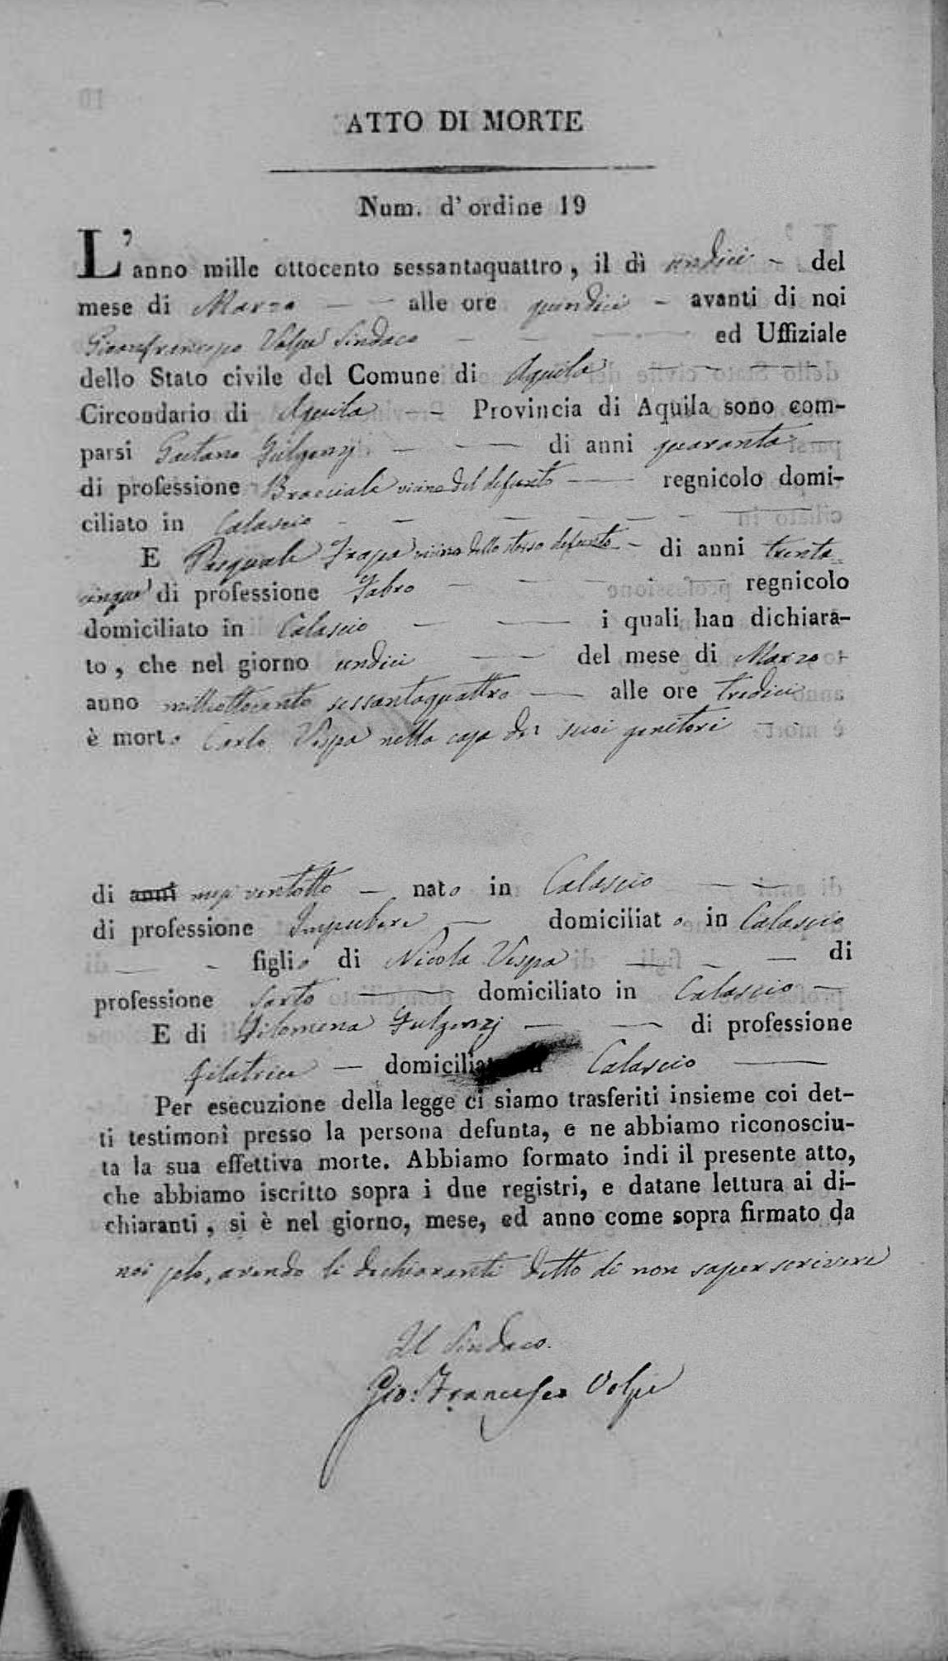 ATTO DI MORTE
Num. d'ordine 19
L'anno mille ottocento sessantaquattro, il dì undici - del
mese di Marzo — - alle ore quindici - avanti di noi
Gianfrancesco Volpe Sindaco ed Uffiziale
dello Stato civile del Comune di Aquila
Circondario di Aquila — Provincia di Aquila sono com-
parsi Gaetano Fulgenzj — di anni quaranta
di professione Bracciale vicino del defunto — regnicolo domi-
ciliato in Calascio
E Pasquale Frapa vicino dello stesso defunto - di anni trenta
cinque di professione Fabro regnicolo
domiciliato in Calascio — i quali han dichiara-
to, che nel giorno undici — del mese di Marzo
anno milleottocento sessantaquattro — alle ore tredici
è morto Carlo Vespa nella casa dei suoi genitori
di anni mesi ventotto — nato in Calascio
di professione Impubere — domiciliato in Calascio
figlio di Nicola Vespa — di
professione Sarto — domiciliato in Calascio —
E di Filomena Fulgenzj — di professione
filatrice — domiciliat Calascio —
Per esecuzione della legge ci siamo trasferiti insieme coi det-
ti testimonî presso la persona defunta, e ne abbiamo riconosciu-
ta la sua effettiva morte. Abbiamo formato indi il presente atto,
che abbiamo iscritto sopra i due registri, e datane lettura ai di-
chiaranti, si è nel giorno, mese, ed anno come sopra firmato da
noi solo, avendo li dichiaranti detto di non saper scrivere
Il Sindaco.
Gio: Francesco Volpe